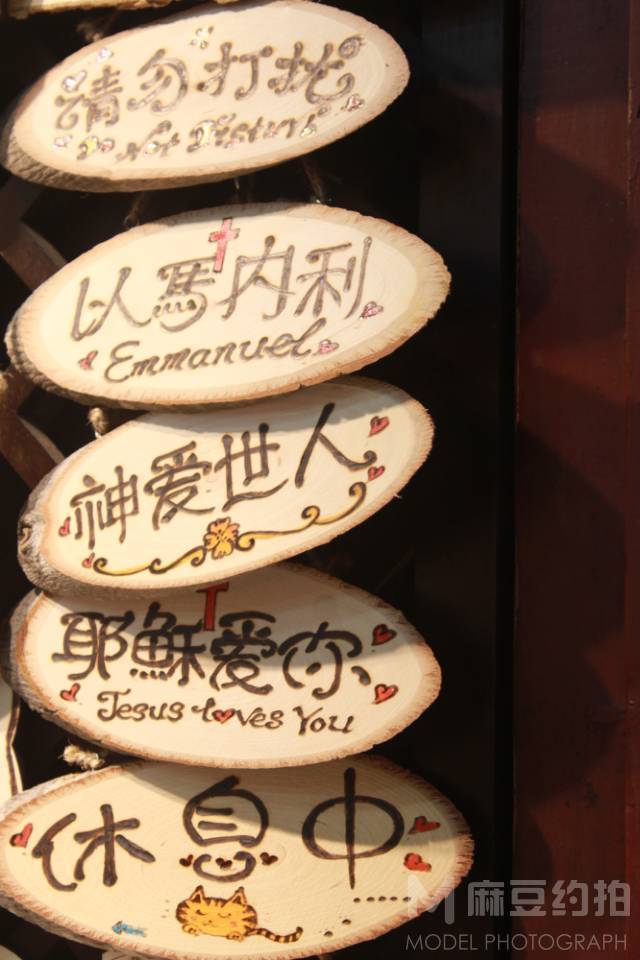 请勿打扰
Do Not Disturb
以馬内利
Emmanuel
神爱世人
耶穌爱你
Jesus Loves You
休息中
麻豆约拍
MODEL PHOTOGRAPH